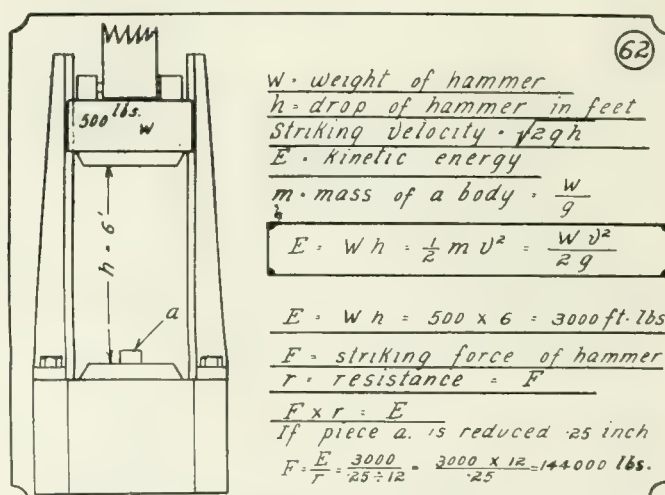 62
500 lbs.
W
h = 6'
a
W = weight of hammer
h = drop of hammer in feet
Striking Velocity = √2gh
E = Kinetic energy
m = mass of a body = W/g
E = Wh = ½ m v² = W v²/2g
E = Wh = 500 x 6 = 3000 ft. lbs
F = striking force of hammer
r = resistance = F
F x r = E
If piece a. is reduced .25 inch
F = E/r = 3000/.25÷12 = 3000 x 12/.25 = 144000 lbs.